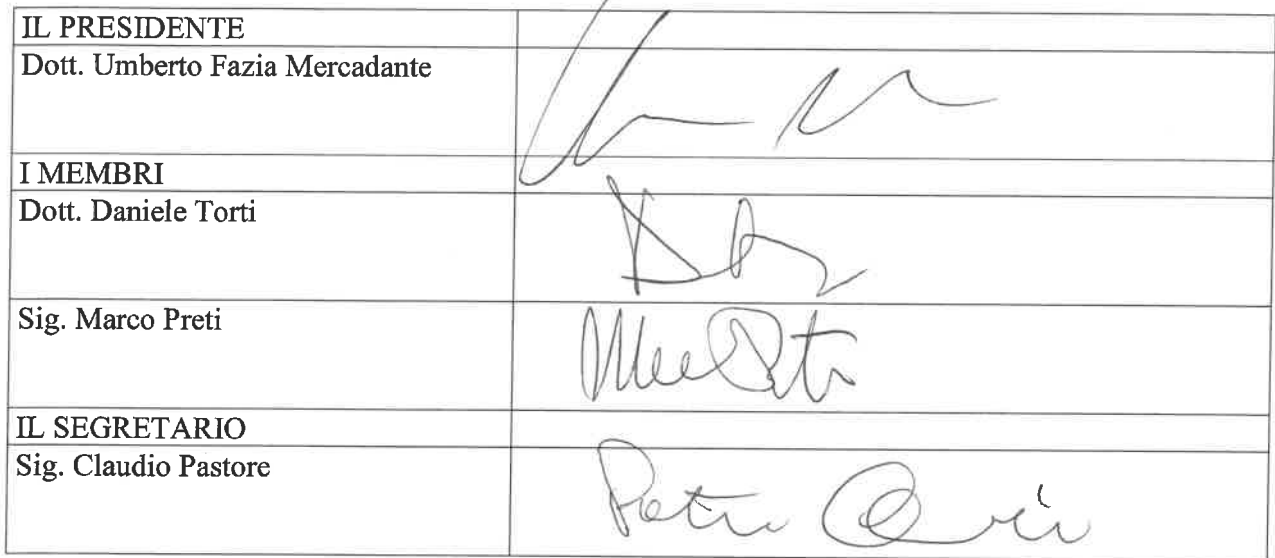 IL PRESIDENTE
Dott. Umberto Fazia Mercadante
I MEMBRI
Dott. Daniele Torti
Sig. Marco Preti
IL SEGRETARIO
Sig. Claudio Pastore